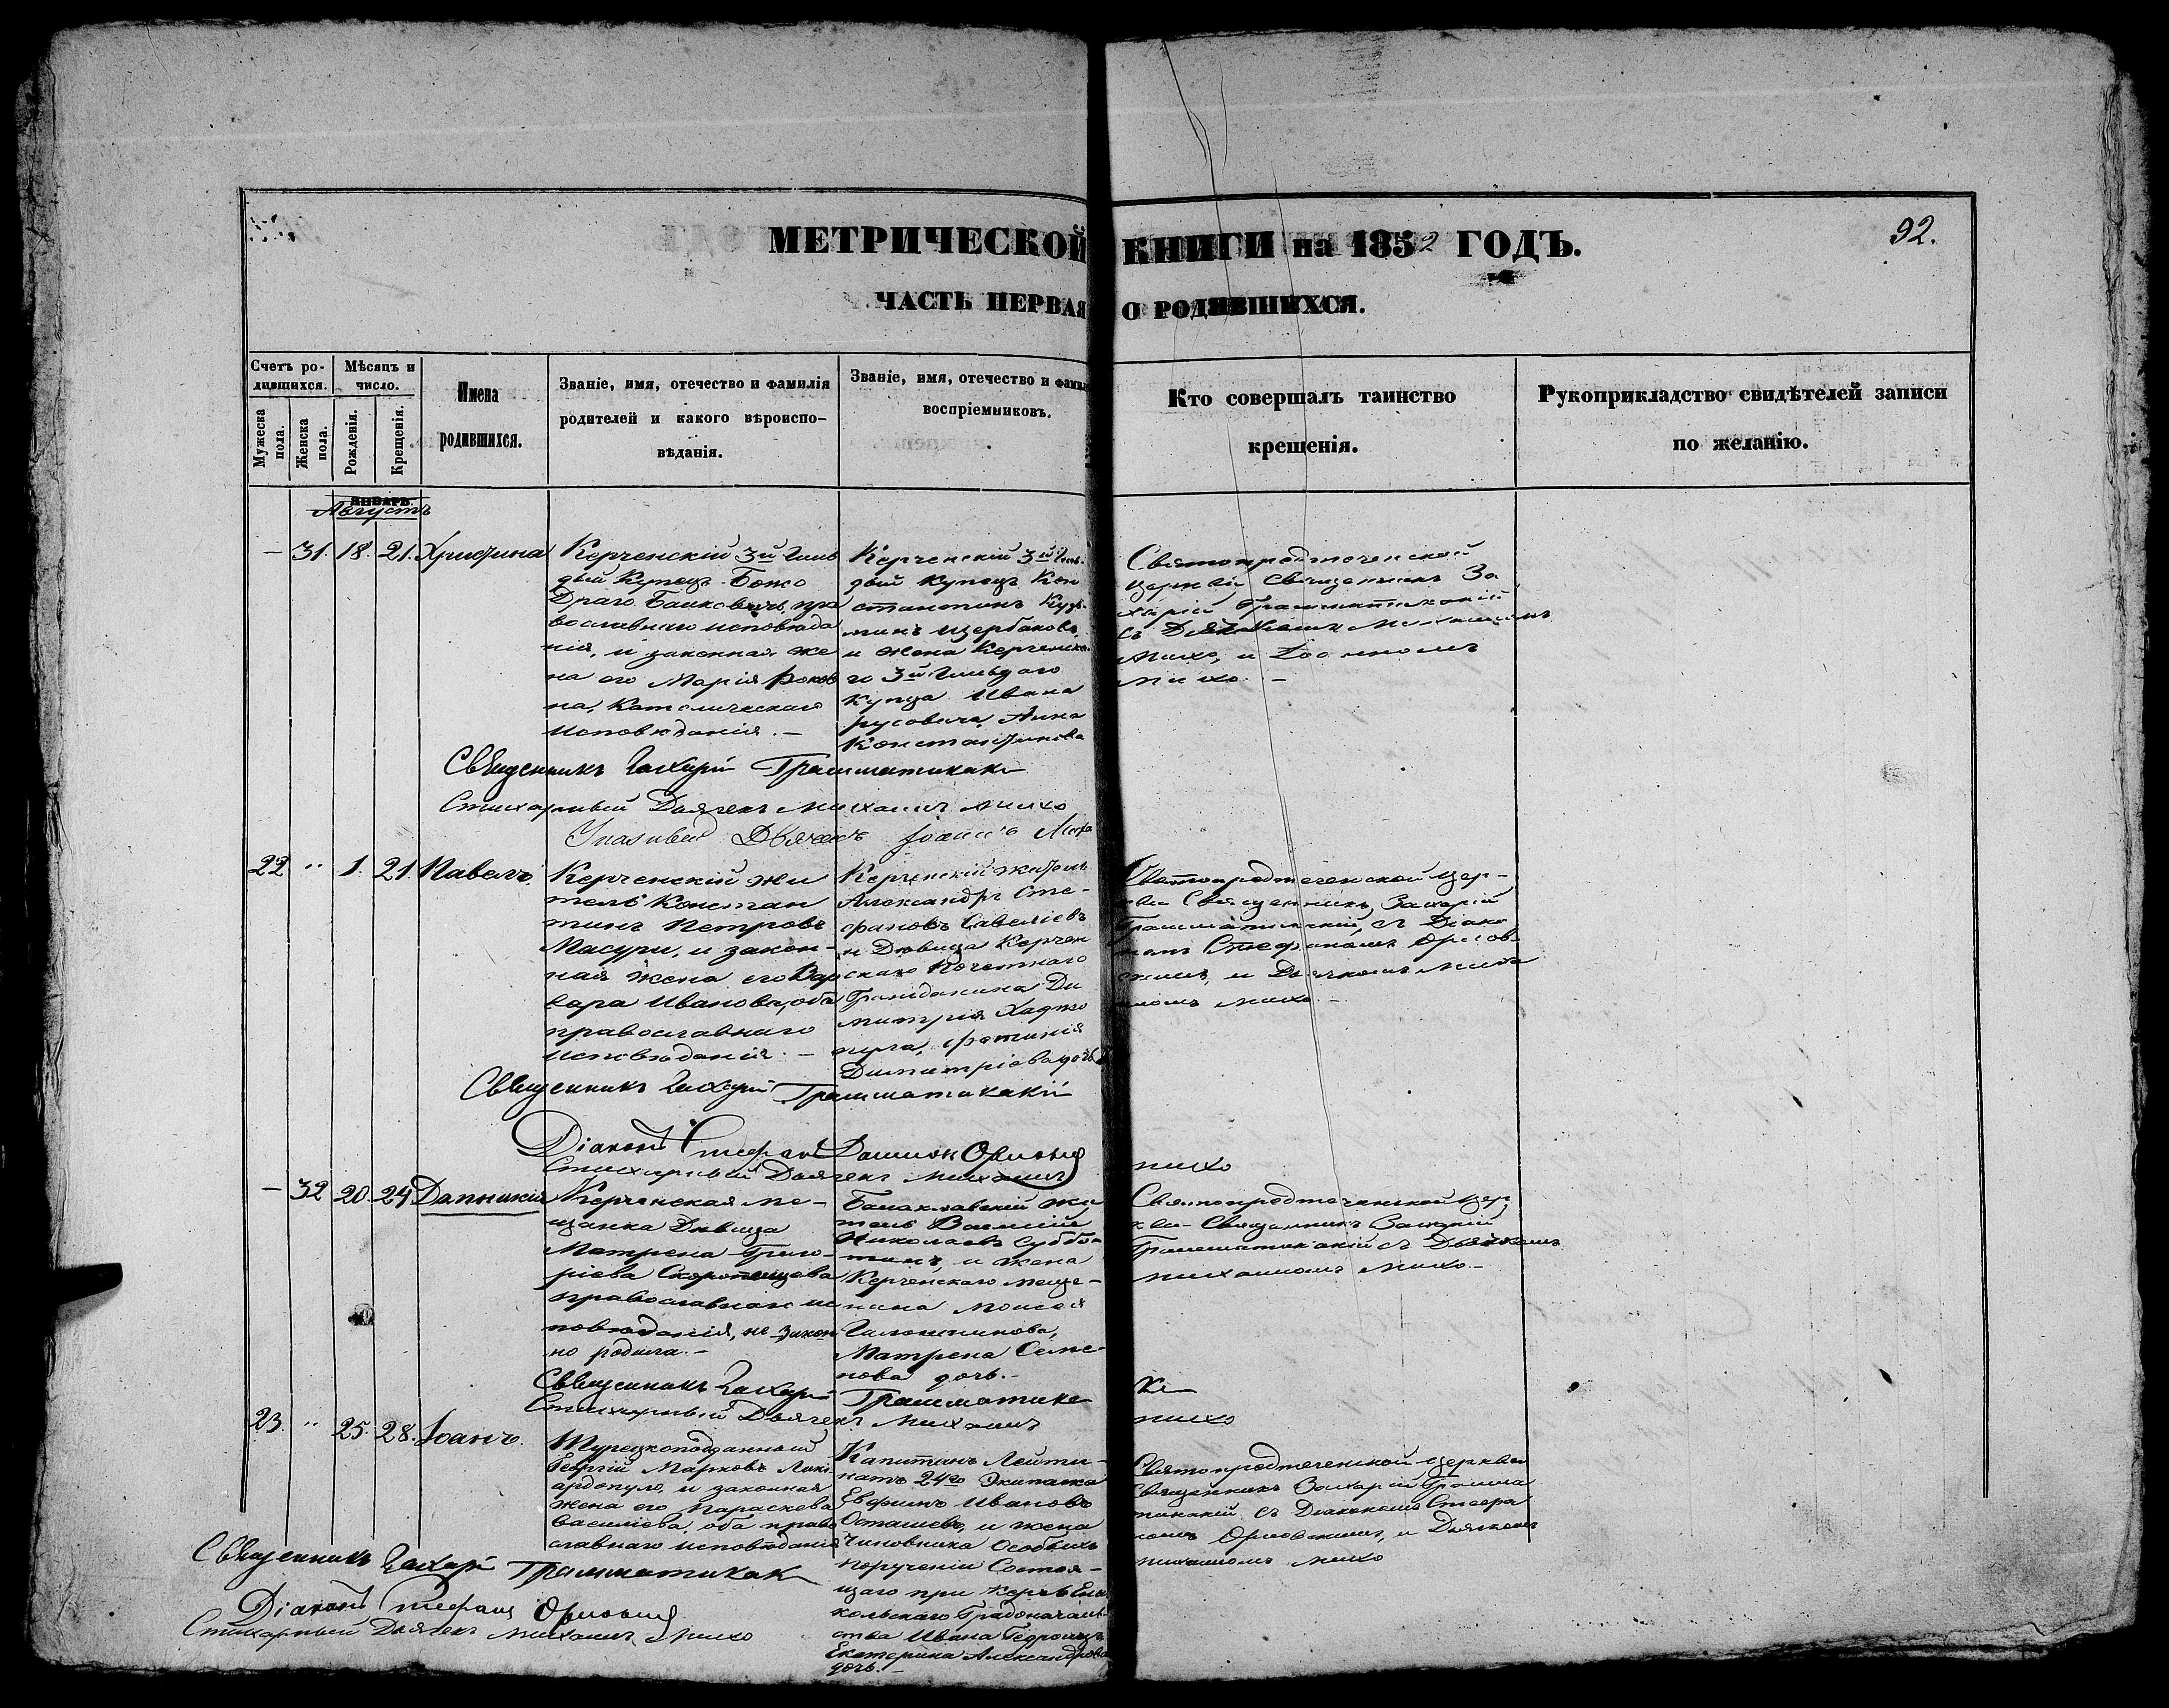 92.
МЕТРИЧЕСКОЙ КНИГИ на 1852 ГОДЪ.
ЧАСТЬ ПЕРВАЯ О РОДИВШИХСЯ.
Счетъ ро-
дившихся.
Мужеска
пола.
Женска
пола.
Мѣсяцъ и
число.
Рожденія.
Крещенія.
Имена
родившихся.
Званіе, имя, отечество и фамилія
родителей и какого вѣроиспо-
вѣданія.
Званіе, имя, отечество и фамил
воспріемниковъ.
Кто совершалъ таинство
крещенія.
Рукоприкладство свидѣтелей записи
по желанію.
ЯНВАРЬ.
Августъ
— 31. 18. 21. Христина
Керченскій 3й Гиль
дый Купецъ Божо
Драго пра
вославнаго исповѣда
нія, и законная же
на его Марія
на, Католическаго
исповѣданія. —
Керченскій 3й Гиль-
дый Купецъ Кон
стантинъ Кузь-
минъ Щербаковъ,
и жена Керченска-
го 3й Гильдого
купца Ивана
Русовича, Анна
Константинова
Святопредтеченской
церкви Священникъ За
харій Грамматикакій
съ Дьячкомъ Михаиломъ
Михо, и Іоанномъ
Михо. —
Священникъ Захарій Грамматикаки
Стихарный Дьячекъ Михаилъ Михо
Указный Дьячекъ Іоаннъ Михо
22 " 1. 21. Павелъ.
Керченскій жи
тель Констан
тинъ Петровъ
Масури, и закон-
ная жена его Вар
вара Иванова, оба
православнаго
исповѣданія. —
Керченскій житель
Александръ Сте-
фановъ Савеліевъ
и Дѣвица Керчен
скаго Почетнаго
Гражданина Ди
митрія Хаджо
пула, Фотинія
Димитріева дочь
Святопредтеченской цер-
кви Священникъ Захарій
Грамматикакій, съ Діако
номъ Стефаномъ Орлов-
скимъ, и Дьячкомъ Миха
иломъ Михо. —
Священникъ Захарій Грамматикакій
Діаконъ Стефанъ
Стихарный Дьячекъ Михаилъ Михо
— 32 20. 24 Домникія
Керченская ме-
щанка Дѣвица
Матрена Григо-
ріева
православнаго ис
повѣданія, не закон
но родила. —
Балаклавскій жи
тель Василій
Николаевъ Суббо
тинъ, и жена
Керченскаго меща-
нина Моисея
Матрена Семе-
нова дочь. —
Святопредтеченской цер
кви Священникъ Захарій
Грамматикакій съ Дьячкомъ
Михаиломъ Михо. —
Священникъ Захарій Грамматикаки
Стихарный Дьячекъ Михаилъ Михо
23. " 25. 28. Іоаннъ.
Турецкоподданный
Георгій Марковъ
и законная
жена его Параскева
Василіева, оба право
славнаго исповѣданія
Капитанъ Лейти-
натъ 24го Экипажа
Ефимъ Ивановъ
Осташевъ, и жена
Чиновника Особыхъ
порученій Состоя-
щаго при Керчь Ени
кольскаго Градоначаль-
ства Ивана
Екатерина Александрова
дочь. —
Святопредтеченской церкви
Священникъ Захарій Грамма
тикакій съ Діакономъ Стефа
номъ Орловскимъ, и Дьячкомъ
Михаиломъ Михо
Священникъ Захарій Грамматикаки
Діаконъ Стефанъ
Стихарный Дьячекъ Михаилъ Михо